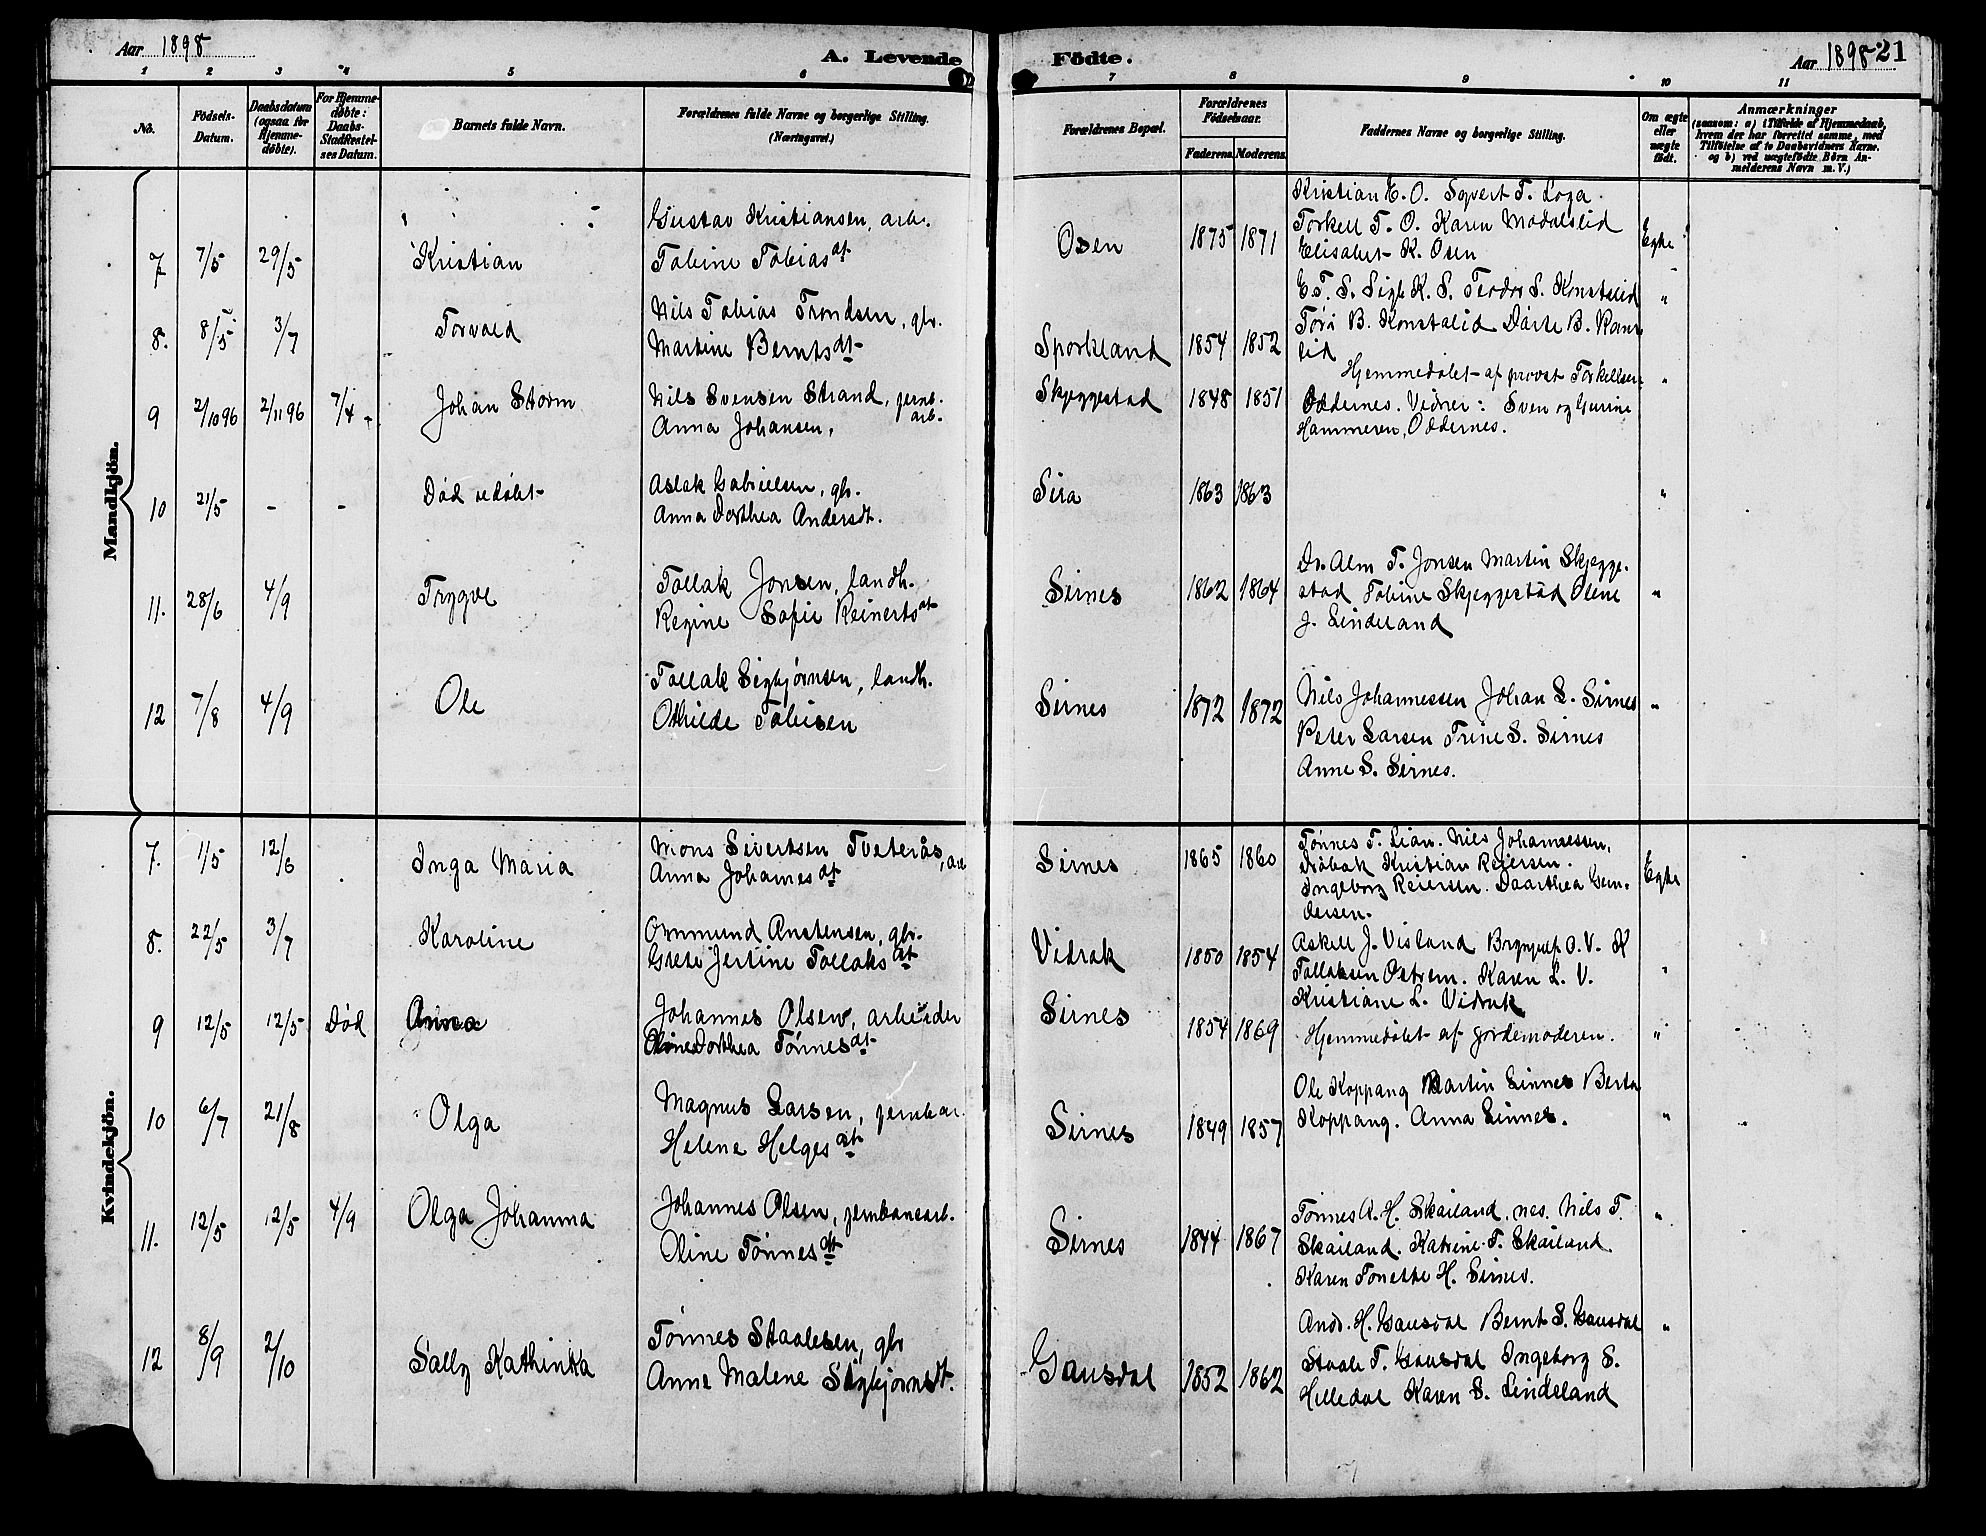 Aar 1898
A. Levende Födte.
Aar 1898 21
1 2 3 4 5 6 7 8 9 10 11
No.
Födsels-
Datum.
Daabsdatum
(ogsaa for
Hjemme-
døbte).
For Hjemme-
døbte:
Daabs-
Stadfæstel-
ses Datum.
Barnets fulde Navn.
Forældrenes fulde Navne og borgerlige Stilling.
(Næringsvei.)
Forældrenes Bopæl.
Forældrenes
Födselsaar.
Faderens. Moderens.
Faddernes Navne og borgerlige Stilling.
Om ægte
eller
uægte
født.
Anmærkninger
(saasom: a) i Tilfælde af Hjemmedaab,
hvem der har forrettet samme, med
Tilføielse af to Daabsvidners Navne.
og b) ved uægtefødte Börn An-
melderens Navn m. V.)
Mandkjön.
7 7/5 29/5 Kristian
Gustav Kristiansen, arb.
Tobine Tobiasdt
Osen 1875 1871
Kristian E. O. Syvert T. Loga.
Torkell T. O. Karen Modalslid
Elisabet K. Osen
Egte
8. 8/5 3/7 Torvald
Nils Tobias Trondsen, gbr.
Martine Berntsdt
Sporkland 1854 1852
E. T. S. Sigb. K. S. Teodor S. Konstalid "
Tori B. Konstalid Dorte B. Ram
lid
9 2/10 96 2/11 96 7/4 Johan Storm
Nils Svensen Strand, jernb.
arb.
Anna Johansen,
Skjeggestad 1848 1851
Hjemmedøbt af provst Torkellsen "
Oddernes. Vidner: Sven og Gurine
Hammeren, Oddernes.
10 21/5 - - Død udøbt
Aslak Gabrielsen, gbr.
Anna Dorthea Andersdt.
Sira 1863 1863 "
11. 28/6 4/9 Trygve
Tollak Jonsen, landh.
Regine Sofie Reinertsdt
Sirnes 1862 1864
Dr. Alm T. Jonsen Martin Skjegge-
stad Tobine Skjeggestad Olene "
J. Lindeland
12 7/8 4/9 Ole
Tollak Sigbjørnsen, landh.
Othilde Tobisen
Sirnes 1872 1872
Nils Johannessen Johan L. Sirnes "
Peter Larsen Trine S. Sirnes
Anne S. Sirnes.
Kvindekjön.
7. 1/5 12/6 Inga Maria
Mons Sivertsen Tveterås, arb
Anna Johannesdt
Sirnes 1865 1860
Tønnes T. Lian. Nils Johannessen,
Drøbak Kristian Reiersen.
Ingeborg Reiersen. Daarthea Gun-
dersen.
Egte
8. 22/5 3/7 Karoline
Ommund Anstensen, gbr.
Grete Jertine Tollaksdt
Vidrak 1850 1854
Askell J. Visland Brynjulf O. V. K
Tollaksen Østrem. Karen L. V. "
Kristiane L. Vidrak
9 12/5 12/5 Død
Johannes Olsen, arbeider
Dorthea Tønnesdt
Sirnes 1854 1869
Hjemmedøbt af jordemoderen. "
10 6/7 21/8 Olga
Magnus Larsen, jernb ar.
Helene Helgesdt
Sirnes 1849 1857
Ole Koppang Martin Linnes Berta
Koppang. Anna Linnes. "
11. 12/5 12/5 4/9 Olga Johanna
Johannes Olsen, jernbanearb.
Oline Tønnesdt
Sirnes 1844 1867
Tønnes A. H. Skailand, nes. Nils T. "
Skailand. Katrine T. Skailand.
Karen Tonette H. Sirnes.
12 8/9 2/10 Sally Kathinka
Tønnes Staalesen, gbr
Anne Malene Sigbjørnsdt.
Gausdal 1852 1862
Andr. H. Gausdal Bernt S. Gausdal "
Staale T. Gausdal Ingeborg S.
Helledal Karen S. Lindeland